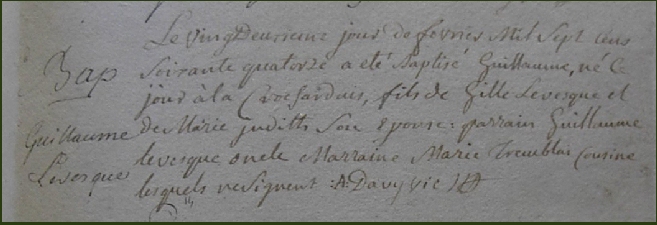 Bap
Guillaume
Levesque
Le vingDeuxieme jour de fevrier Mil Sept cens
Soixante quatorze a eté Baptisé Guillaume, né Ce
jour à la, fils de Gille Levesque et
de Marie judith Son Epouse : parrain Guillaume
levesque oncle Marraine Marie Tremblai Cousine
lesquels ne Signent